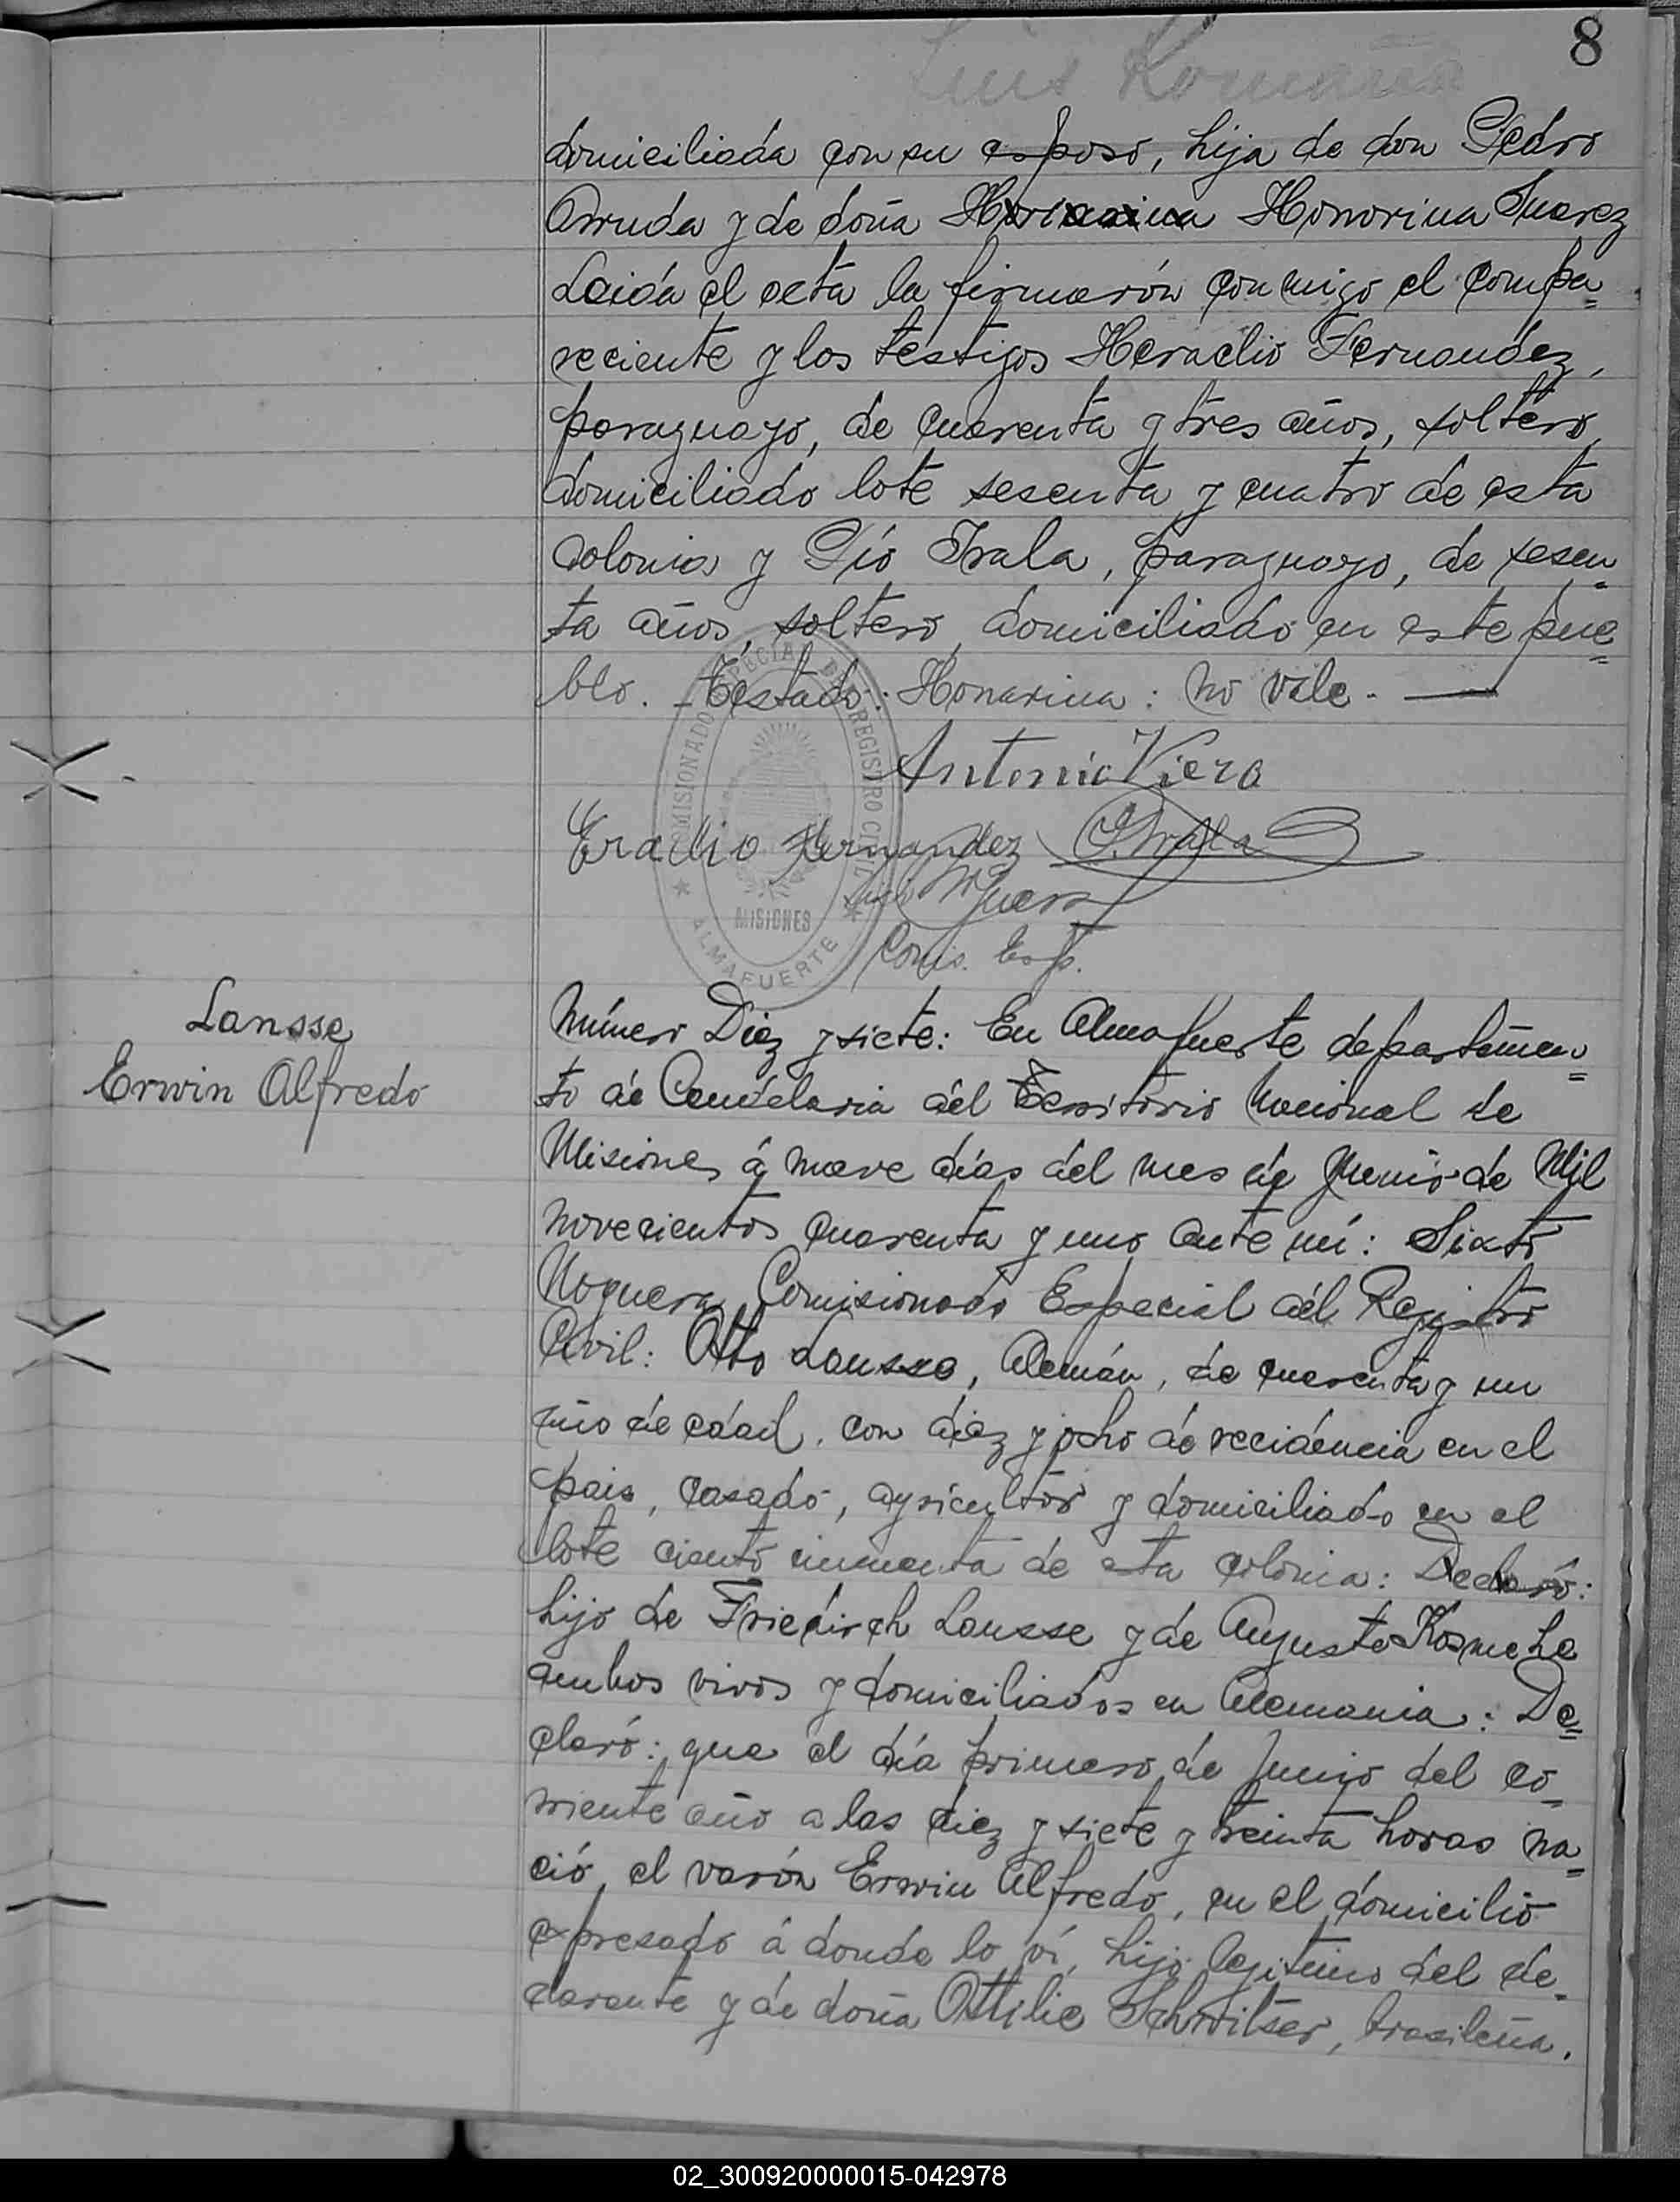 8
Luis Romaña
domiciliada con su esposo, hija de don Pedro
Arruda y de doña Honarina Honorina Suarez
Leida el acta la firmarón conmigo el compa=
reciente y los testigos Heraclio Fernandez,
paraguayo, de cuarenta y tres años, soltero,
domiciliado lote sesenta y cuatro de esta
colonia y Pío Irala, paraguayo, de sesen=
ta años, soltero, domiciliado en este pue=
blo. - Testado: Honarina: no vale. —
COMISIONADO ESPECIAL DEL REGISTRO CIVIL
MISIONES
★ ALMAFUERTE ★
Antonio Viera
Eraclio Fernandez P. Irala
Comis. Esp.
Lansse
Erwin Alfredo
Número Diez y siete: En Almafuerte departamen=
to de Candelaria del Territorio Nacional de
Misiones á nueve días del mes de Junio de Mil
novecientos cuarenta y uno ante mí: Sixto
Noguera Comisionado Especial del Registro
Civil: Otto Lansse, Alemán, de cuarenta y un
año de edad, con diez y ocho de recidencia en el
pais, casado, agricultor y domiciliado en el
lote ciento cincuenta de esta colonia: Declaró:
hijo de Friedirch Lansse y de Auguste Kosmehe
ambos vivos y domiciliados en Alemania: De=
claró: que el día primero de Junio del co=
rriente año a las diez y siete y treinta horas na=
ció el varón Erwin Alfredo, en el domicilio
expresado á donde lo ví, hijo legitimo del de=
clarante y de doña Ottilie Schwitser, brasileña,
02_300920000015-042978